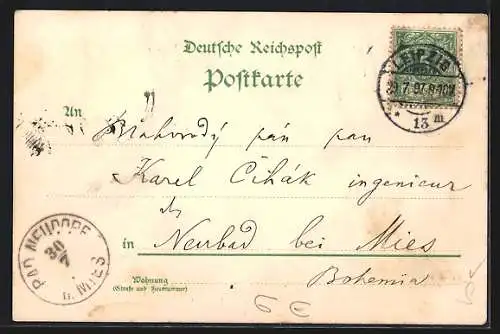 Deutsche Reichspost
Postkarte
LEIPZIG
7.97.
13 m
An
pán pan
Karel Cihák ingenieur
in Neubad bei Mies
Bohemia
Wohnung
(Straße und Hausnummer)
BAD NEUDORF
30
7